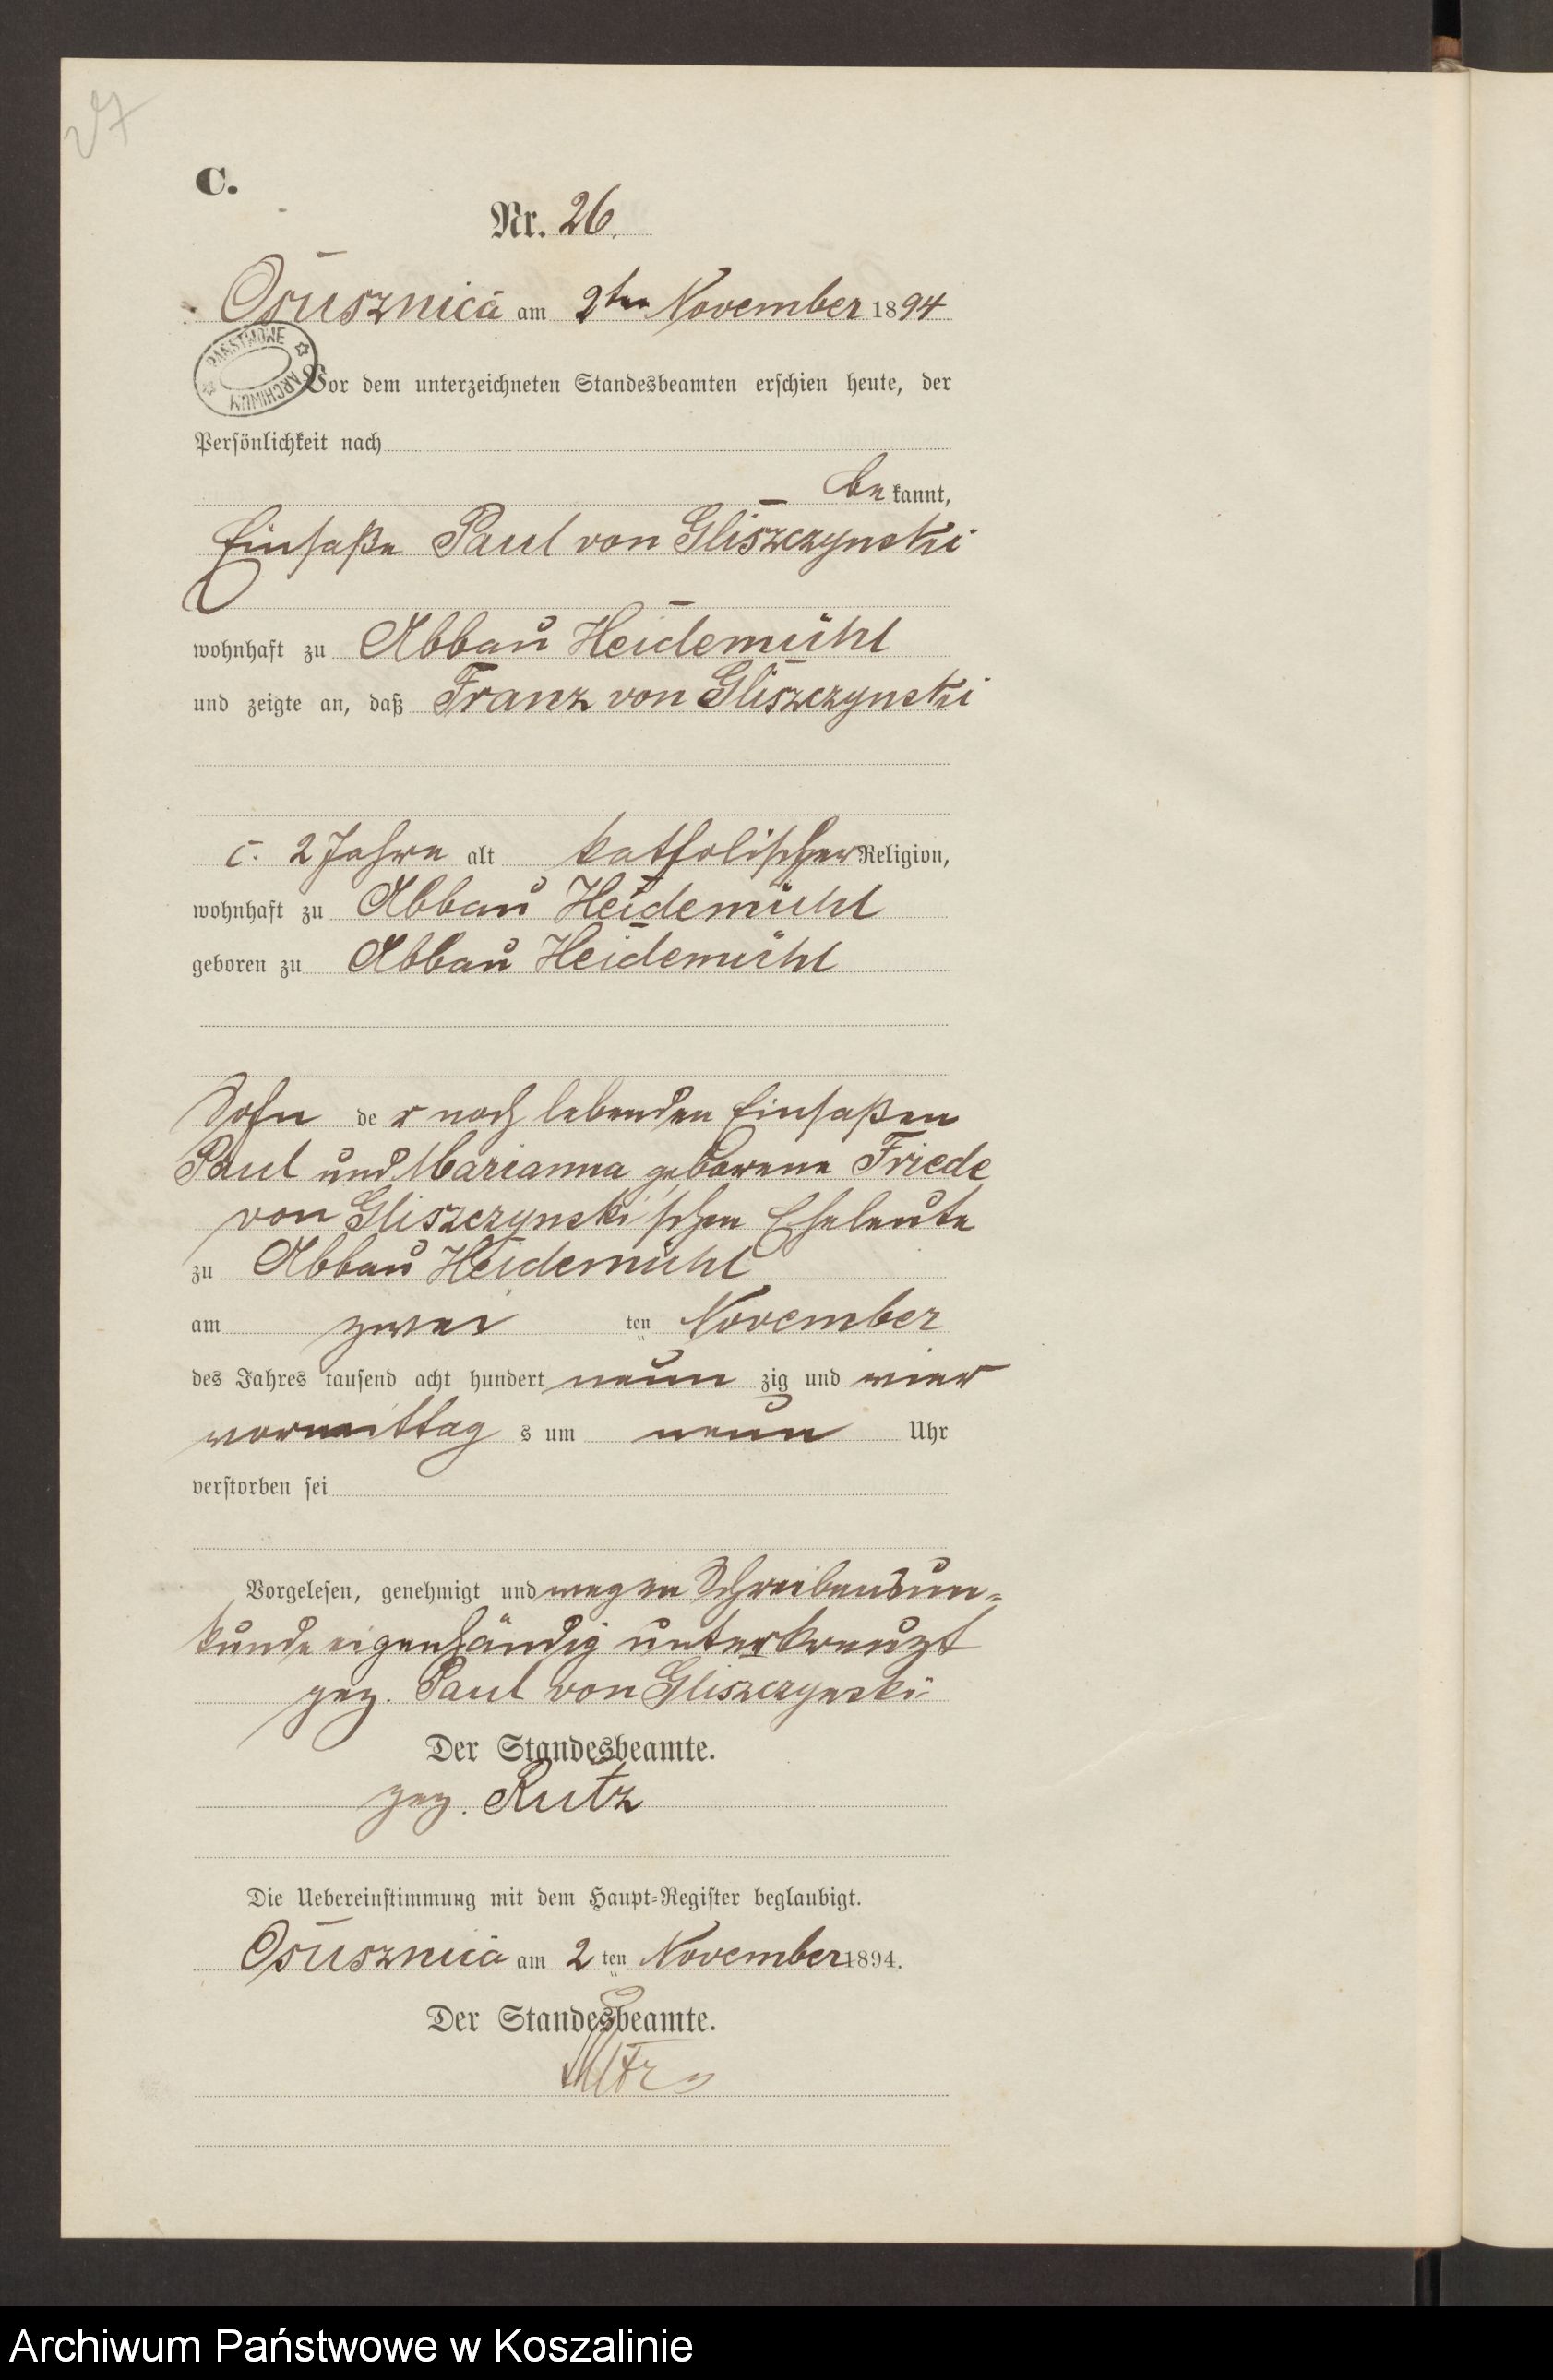 27
C.
Nr. 26.
Osusznica am 2ten November 1894
PAŃSTWOWE ARCHIWUM
Vor dem unterzeichneten Standesbeamten erschien heute, der
Persönlichkeit nach
bekannt,
Einsaße Paul von Gliszczynski
wohnhaft zu Abbau Heidemühl
und zeigte an, daß Franz von Gliszczynski
c. 2 Jahre alt katholischer Religion,
wohnhaft zu Abbau Heidemühl
geboren zu Abbau Heidemühl
Sohn der noch lebenden Einsaßen
Paul und Marianna geborene Friede
von Gliszczynski'schen Eheleute
zu Abbau Heidemühl
am zwei ten November
des Jahres tausend acht hundert neun zig und vier
vormittag s um neun Uhr
verstorben sei
Vorgelesen, genehmigt und wegen Schreibensun-
kunde eigenhändig unterkreuzt
gez. Paul von Gliszczynski
Der Standesbeamte.
gez. Rutz
Die Uebereinstimmung mit dem Haupt-Register beglaubigt.
Osusznica am 2 ten November 1894.
Der Standesbeamte.
Rutz
Archiwum Państwowe w Koszalinie